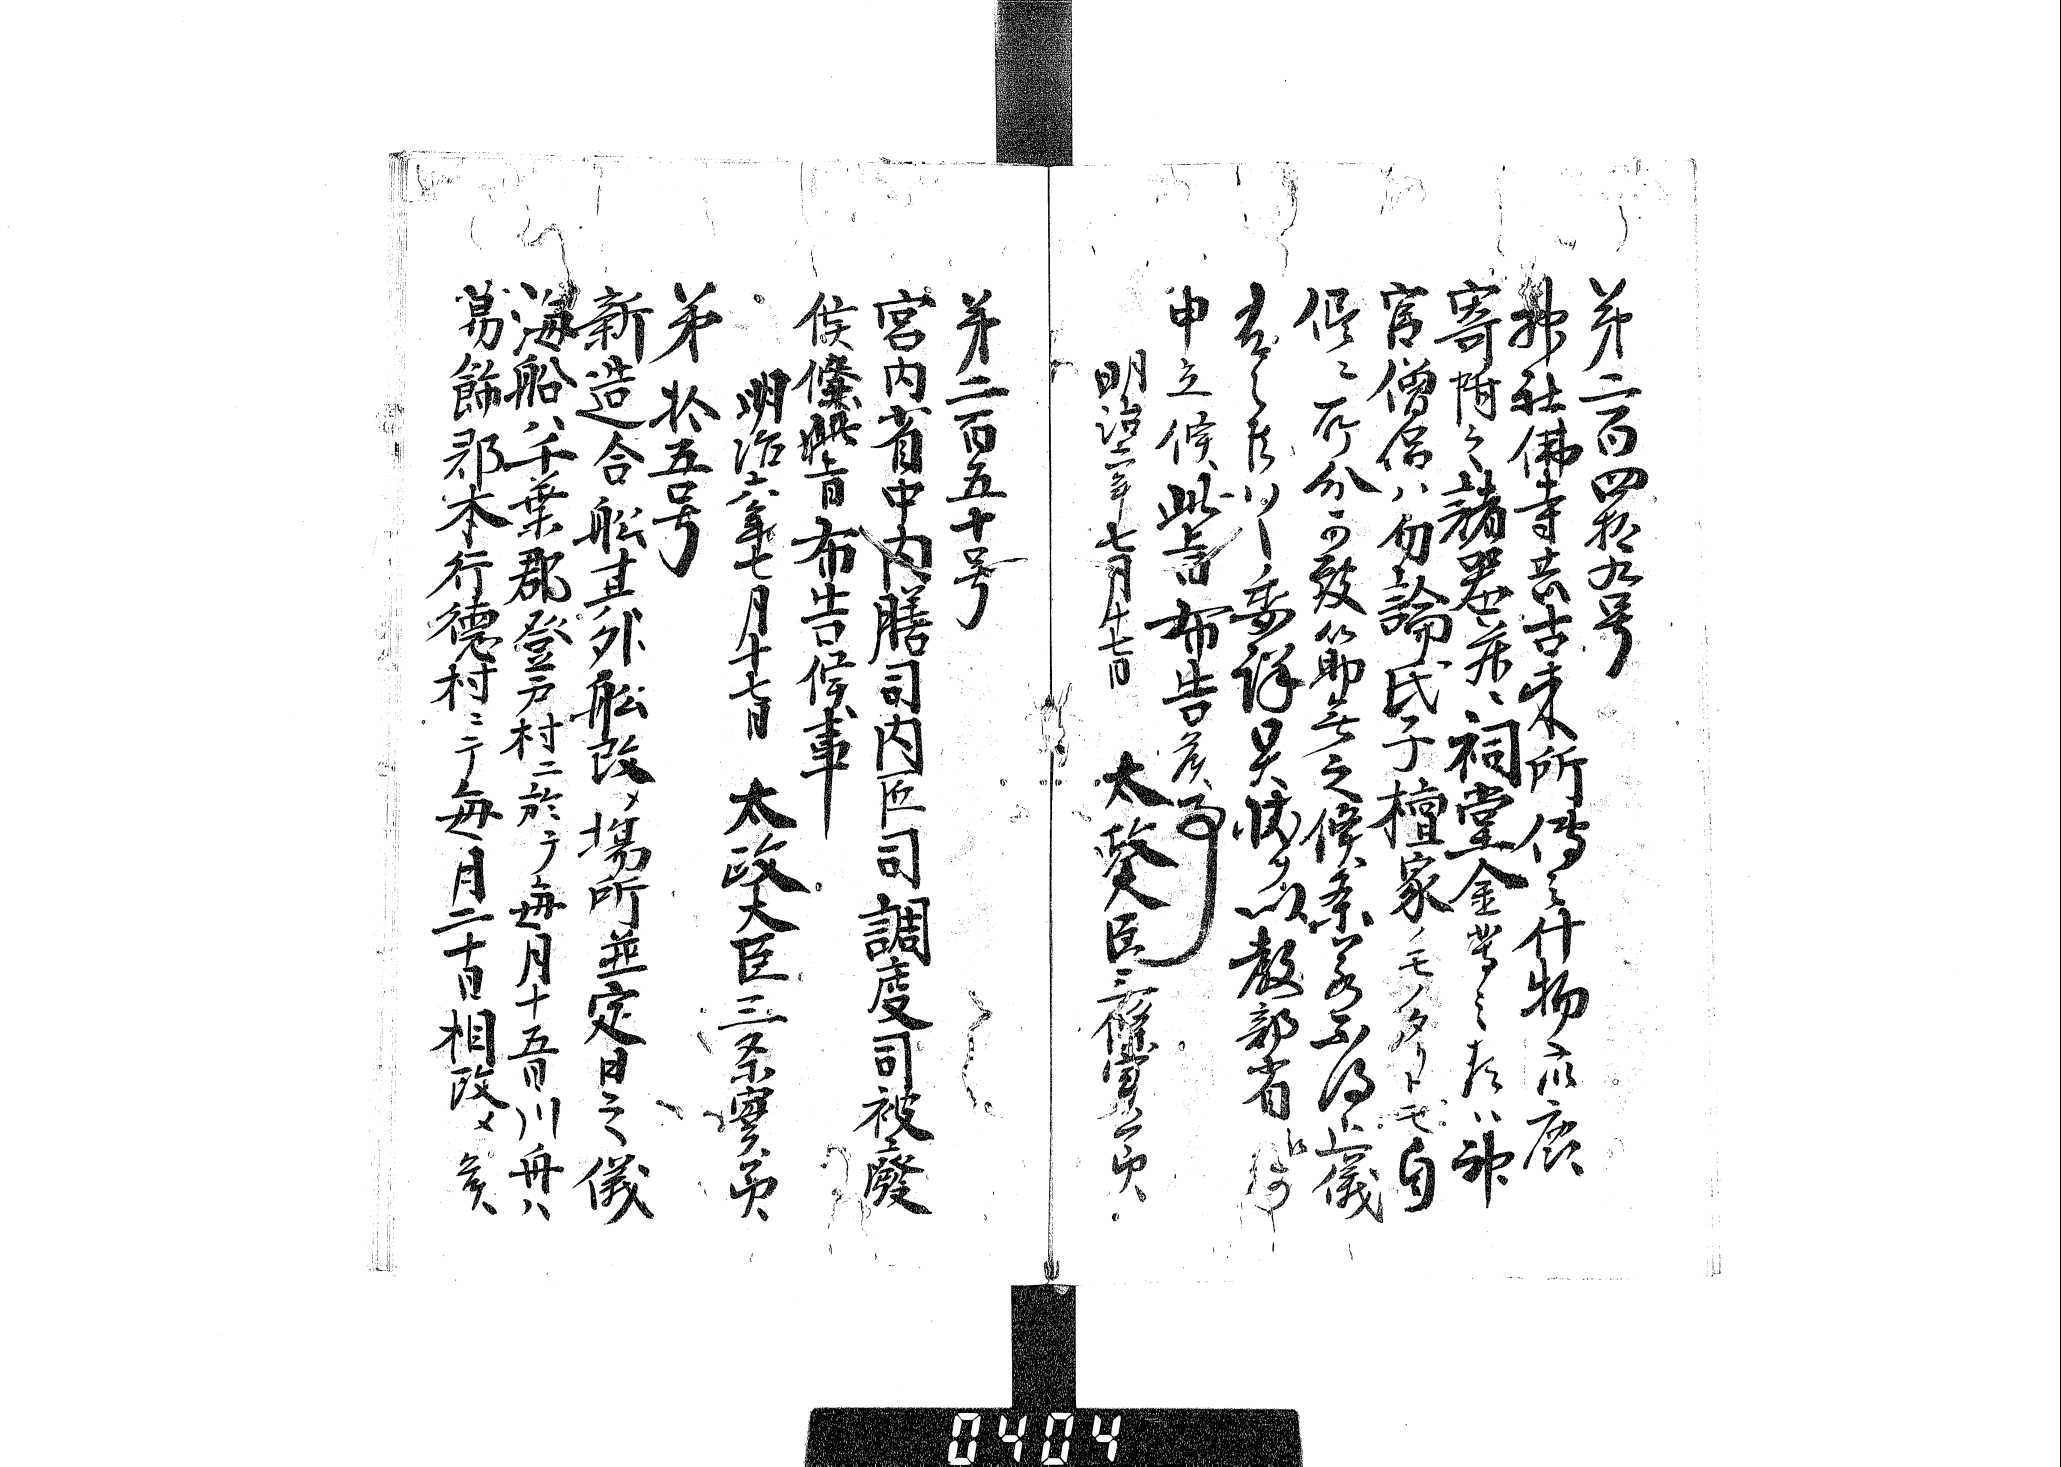 第二百四拾九号
神社佛寺共古来所傳之什物衆庶
寄附之諸器並ニ祠堂金等之類ハ神
官僧侶ハ勿論氏子檀家ノモノタリトモ自
侭ニ所分可致筋無之候条若不得止儀
有之候ハヽ委詳具状ヲ以教部省
申立候此旨布告候事
明治六年七月十七日 太政大臣三條實美
第二百五十号
宮内省中内膳司内匠司調度司被廢
候條此旨布告候事
明治六年七月十七日 太政大臣三条實美
第拾五号
新造合舩其外舩改メ場所並定日之儀
海船ハ千葉郡登戸村ニ於テ毎月十五日川舟ハ
葛飾郡本行徳村ニテ毎月二十日相改メ候
0404